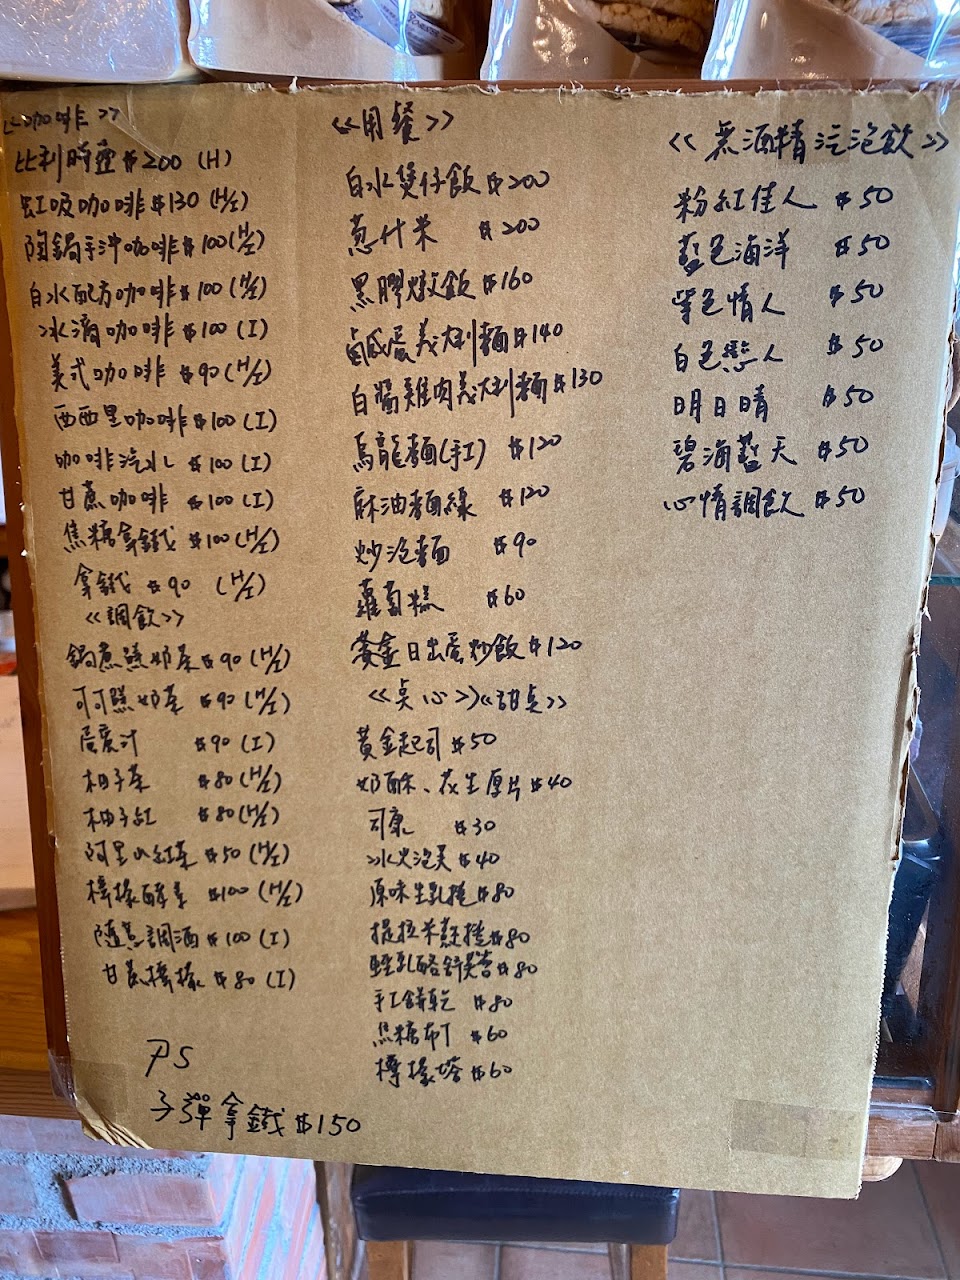 <<咖啡>>
比利時壺$200 (H)
虹吸咖啡$130 (H/I)
陶鍋手沖咖啡$100(H/I)
白水配方咖啡$100 (H/I)
冰滴咖啡$100 (I)
美式咖啡 $90(H/I)
西西里咖啡$100(I)
咖啡汽水 $100(I)
甘蔗咖啡 $100(I)
焦糖拿鐵 $100(H/I)
拿鐵 $90 (H/I)
<<調飲>>
鍋煮 奶茶$90(H/I)
可可 奶茶 $90(H/I)
$90(I)
柚子茶 $80(H/I)
柚子紅 $80(H/I)
阿里山紅茶 $50(H/I)
檸檬酵素 $100(H/I)
隨意調酒$100(I)
甘蔗檸檬 $80 (I)
PS
子彈拿鐵$150
<<用餐>>
白水煲仔飯$200
蔥什米 $200
黑膠燉飯$160
鹹蛋義大利麵$140
白醬雞肉義大利麵$130
烏龍麵(手工) $120
麻油麵線 $120
炒泡麵 $90
蘿蔔糕 $60
黃金日出蛋炒飯$120
<<點心>><<甜點>>
黃金起司$50
奶酥、花生厚片$40
司康 $30
冰火泡芙$40
原味生乳捲$80
提拉米蘇捲$80
乳酪舒芙蕾$80
手工餅乾 $80
焦糖布丁 $60
檸檬塔 $60
<<無酒精汽泡飲>>
粉紅佳人 $50
藍色海洋 $50
紫色情人 $50
白色戀人 $50
明日晴 $50
碧海藍天 $50
心情調飲 $50